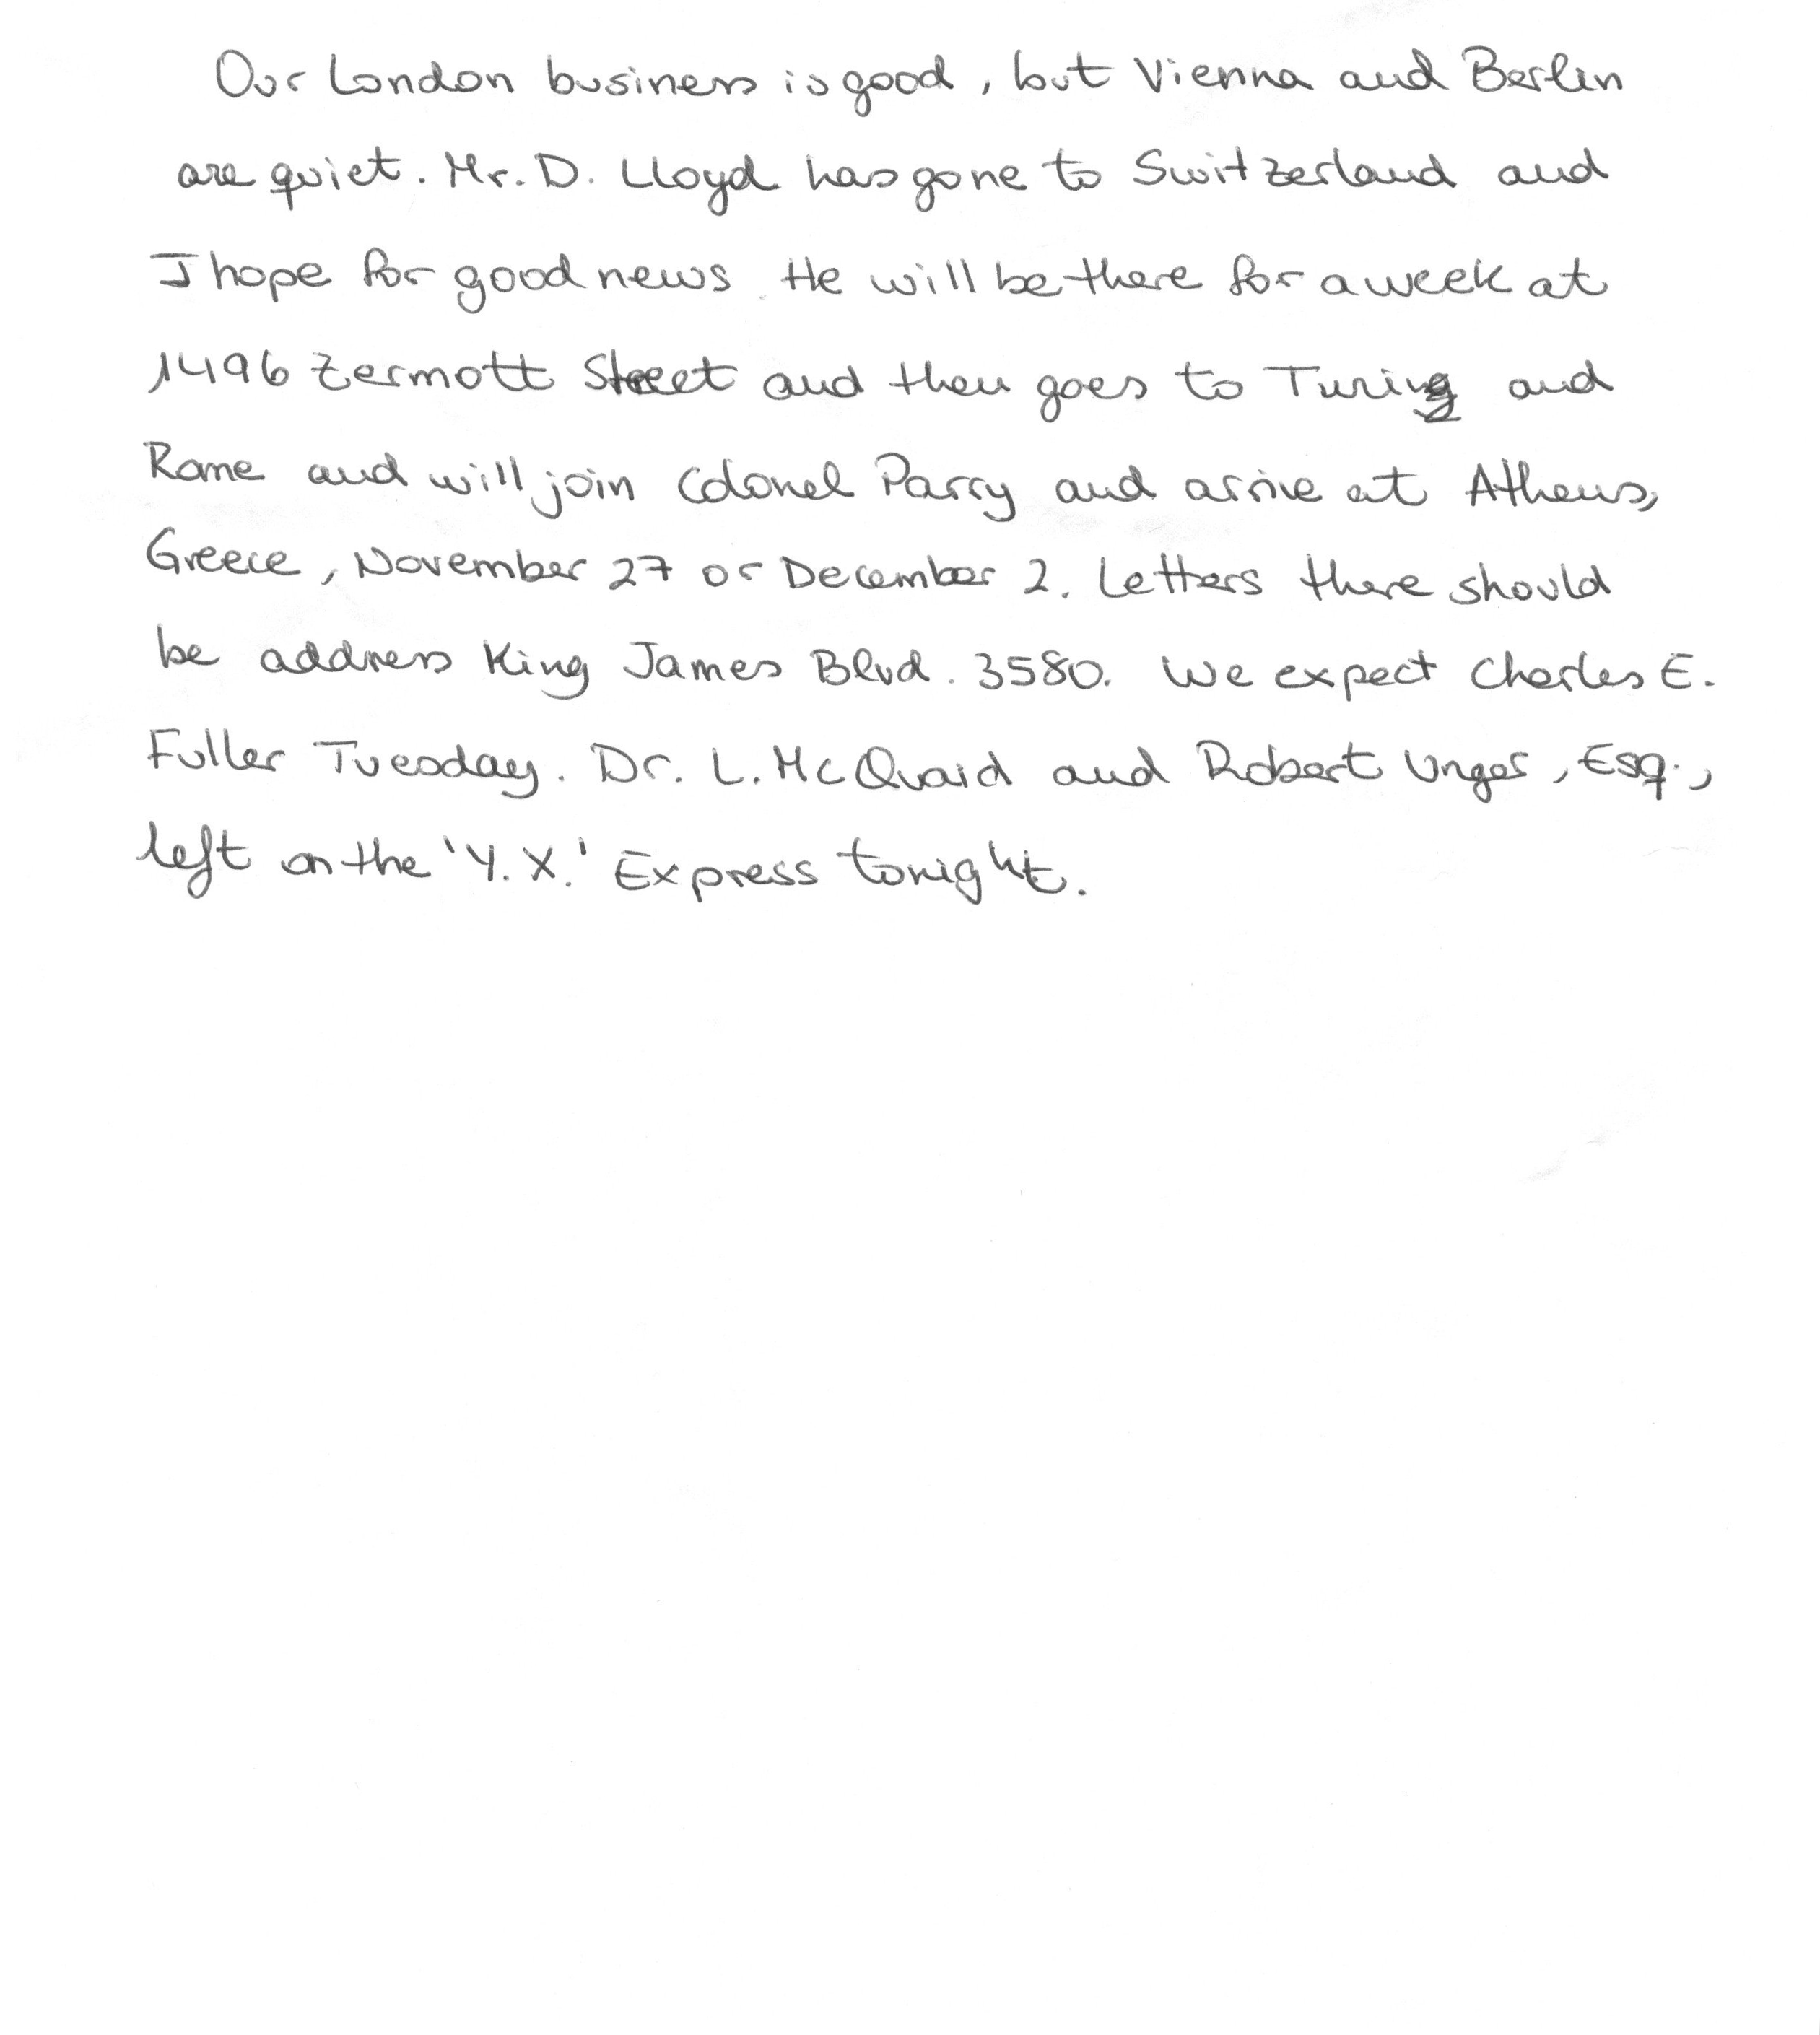 Our London business is good, but Vienna and Berlin
are quiet. Mr. D. Lloyd has gone to Switzerland and
I hope for good news. He will be there for a week at
1496 Zermott Street and then goes to Turing and
Rome and will join Colonel Parry and arrive at Athens,
Greece, November 27 or December 2. Letters there should
be address King James Blvd. 3580. We expect Charles E.
Fuller Tuesday. Dr. L. McQuaid and Robert Unger, Esq.,
left on the 'Y. X.' Express tonight.